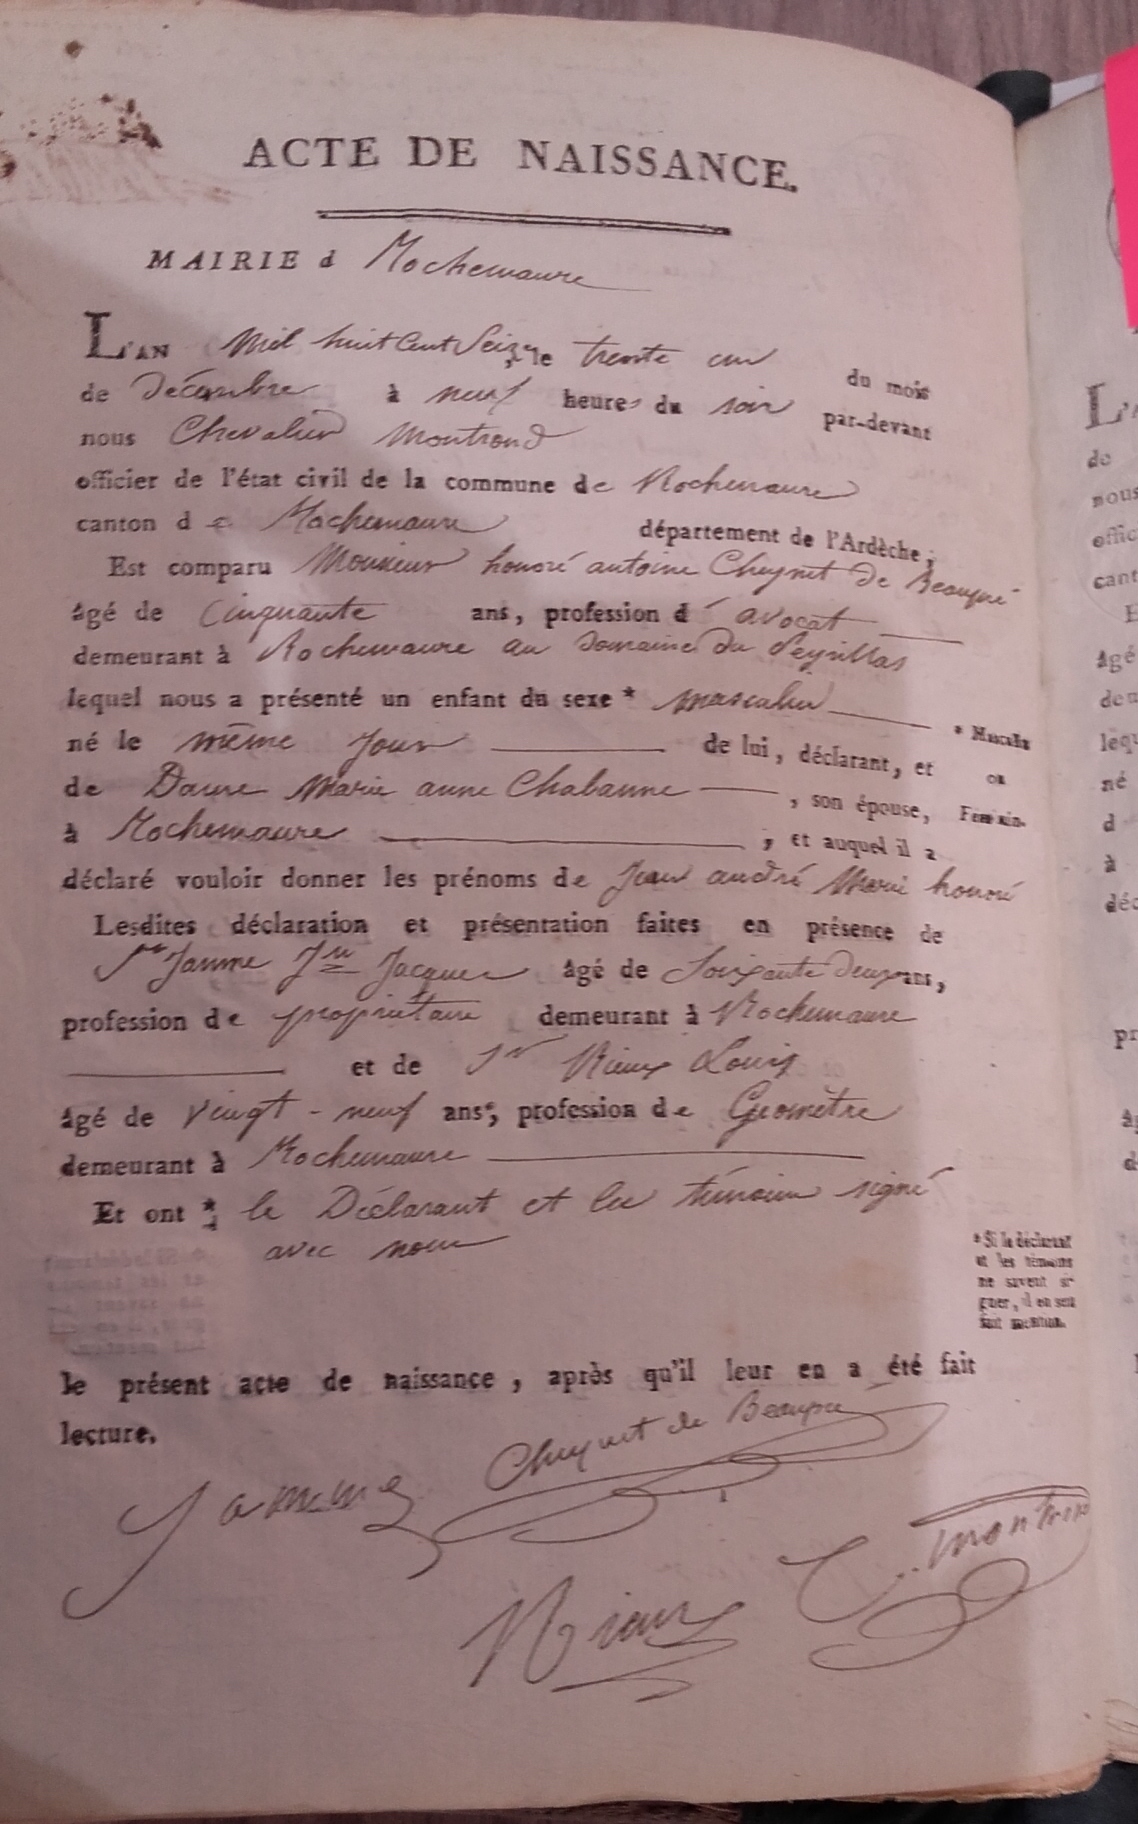 ACTE DE NAISSANCE.
MAIRIE d Rochemaure
L'AN Mil huit Cent Seize le trente un du mois
de Décembre à neuf heures du soir par-devant
nous Chevalier Montrond
officier de l'état civil de la commune de Rochemaure
canton de Rochemaure département de l'Ardèche;
Est comparu Monsieur honoré antoine Cheynet de Beaupré
âgé de Cinquante ans, profession d'avocat
demeurant à Rochemaure au Domaine du
lequel nous a présenté un enfant du sexe * masculin
* Masculin
ou
Féminin.
né le même jour de lui, déclarant, et
de Dame Marie anne Chabanne, son épouse,
à Rochemaure, et auquel il a
déclaré vouloir donner les prénoms de Jean andré Marie honoré
Lesdites déclaration et présentation faites en présence de
Sr Jamme Jn Jacques âgé de Soixante Deux ans,
profession de propriétaire demeurant à Rochemaure
et de Sr Rieux Louis
âgé de Vingt-neuf ans, profession de Géomètre
demeurant à Rochemaure
Et ont * le Déclarant et les témoins signé
avec nous
* Si le déclarant
et les témoins
ne savent si-
gner, il en sera
fait mention.
le présent acte de naissance, après qu'il leur en a été fait
lecture.
Cheynet de Beaupré
Jamme
C. montron
Rieux
L'A
de
nous
offic
cant
E
âgé
dem
lequ
né
d
à
déc
pr
âg
de